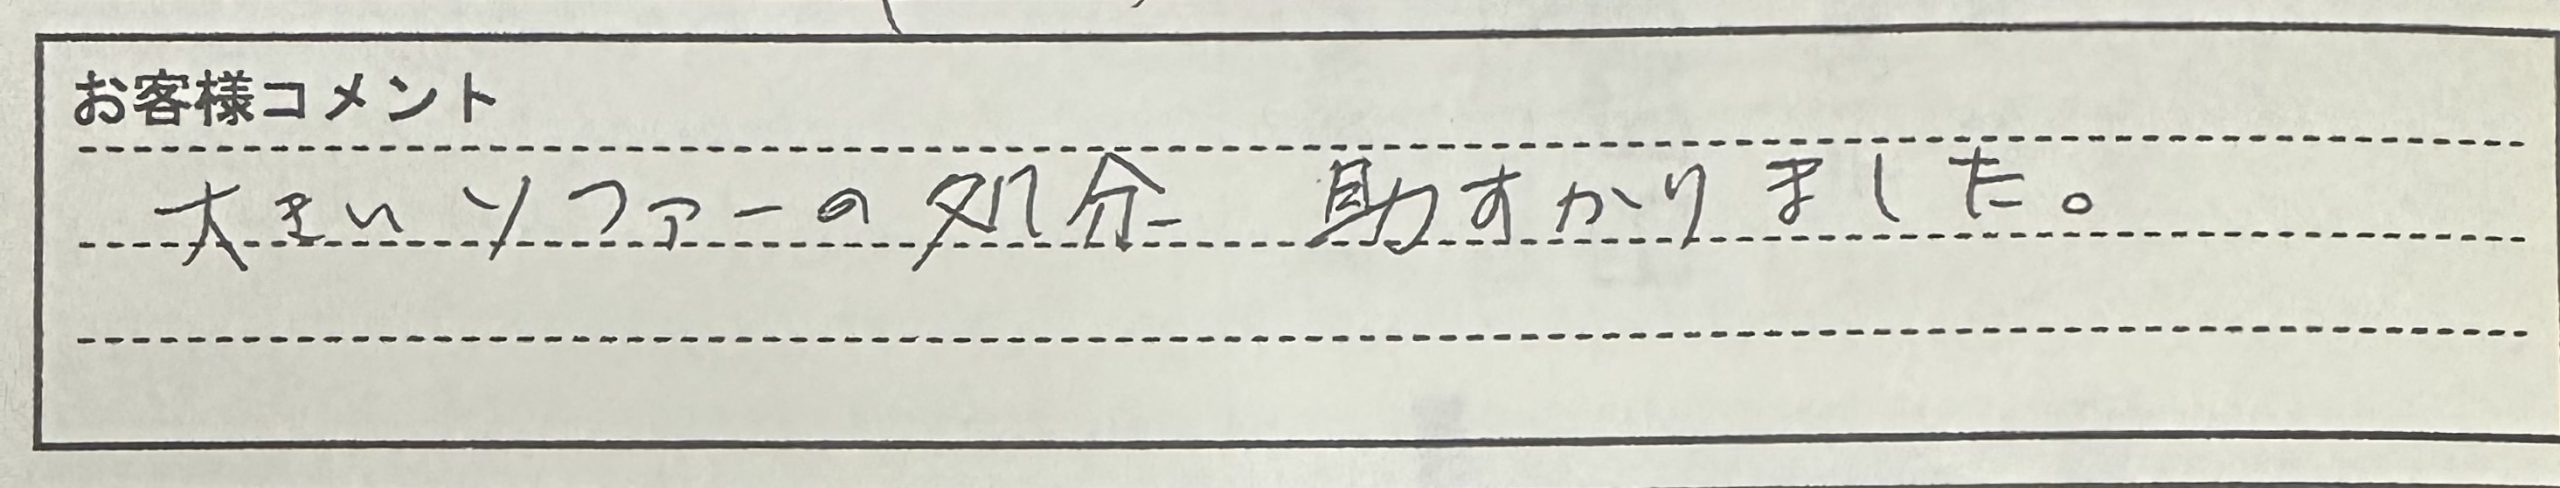 お客様コメント
大きいソファーの処分 助すかりました。